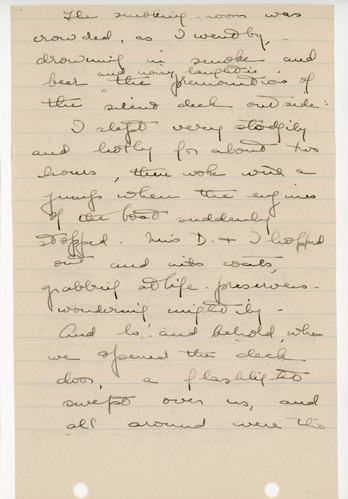 The smoking-room was
crowded, as I went by,
drowning in smoke and
beer and noisy laughter
the premonitions of
the silent deck outside:
I slept very stodgily
and hotly for about two
hours, then woke with a
jump when the engines
of the boat suddenly
stopped. Miss D. + I hopped
out and into coats,
grabbing at life-preservers -
wondering mightily -
And lo, and behold, when
we opened the deck
door, a flashlight
swept over us, and
all around were the